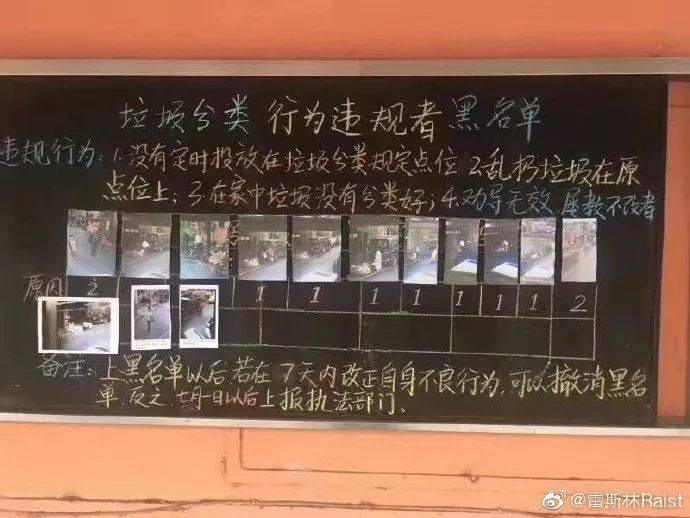 垃圾分类 行为违规者 黑名单
违规行为：1.没有定时投放在垃圾分类规定点位 2.乱扔垃圾在原
点位上；3.在家中垃圾没有分类好；4.劝导无效、屡教不改者
原因 1 1 1 1 1 1 1 2
备注：上黑名单以后若在7天内改正自身不良行为，可以撤消黑名
单，反之，七月一日以后上报执法部门。
@雷斯林Raist